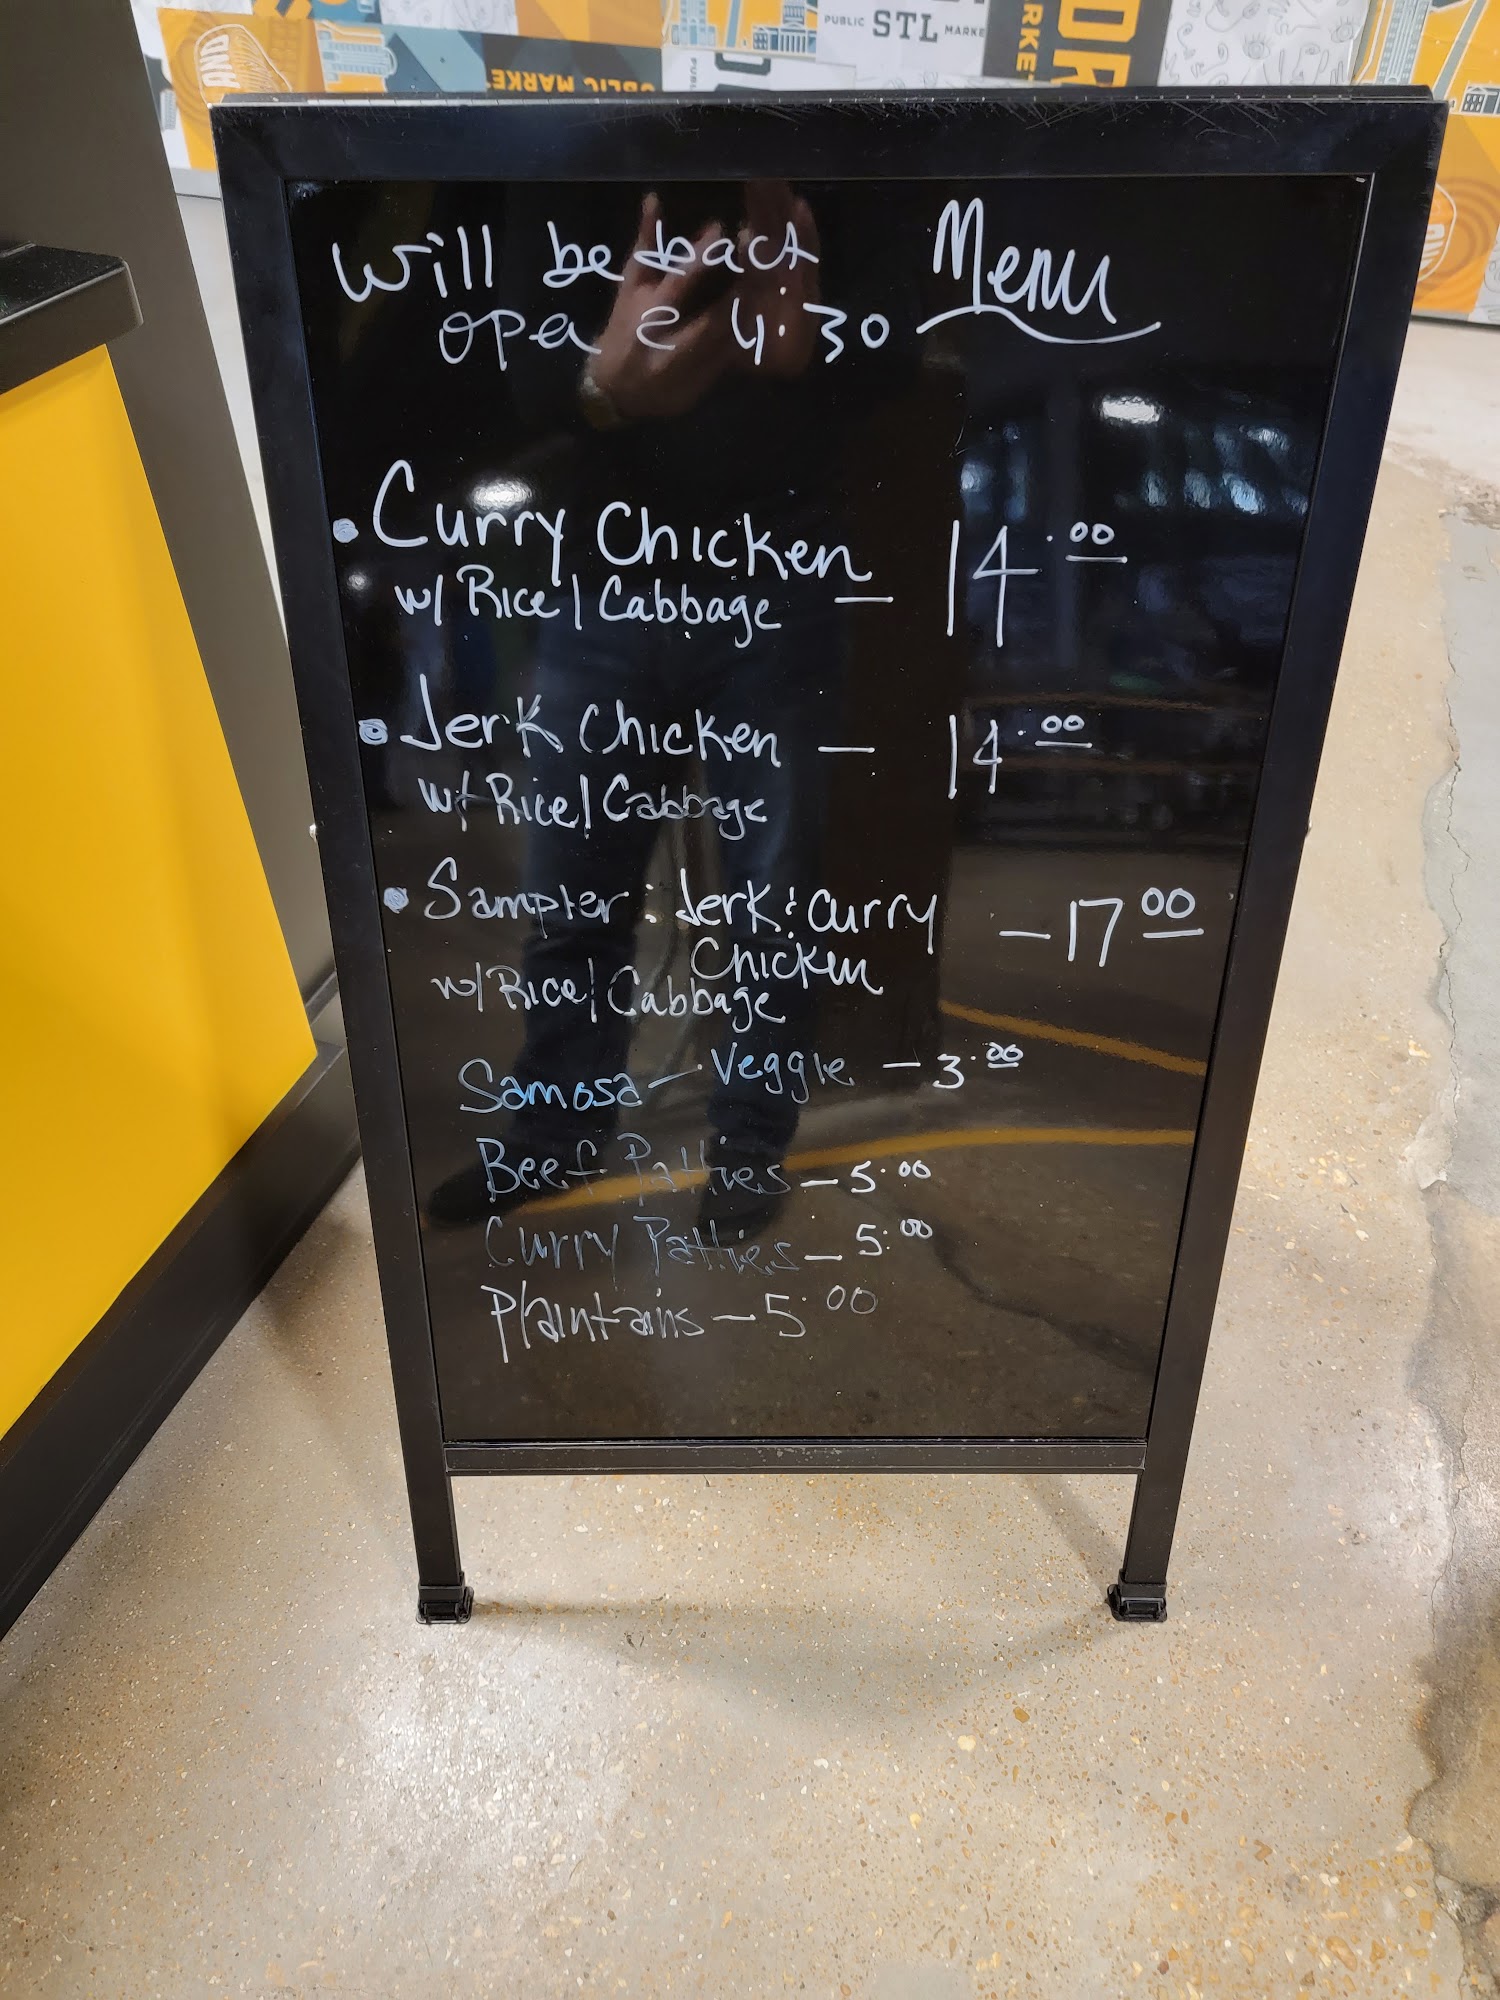 PUBLIC
STL
MARKET
PUBLIC MARKET
Will be back
open @ 4:30
Menu
• Curry Chicken
w/ Rice/Cabbage — 14.00
• Jerk Chicken — 14.00
w/ Rice/Cabbage
• Sampler: Jerk & Curry — 17 00
Chicken
w/ Rice/Cabbage
Samosa — Veggie — 3.00
Beef Patties — 5.00
Curry Patties — 5.00
Plaintains — 5.00